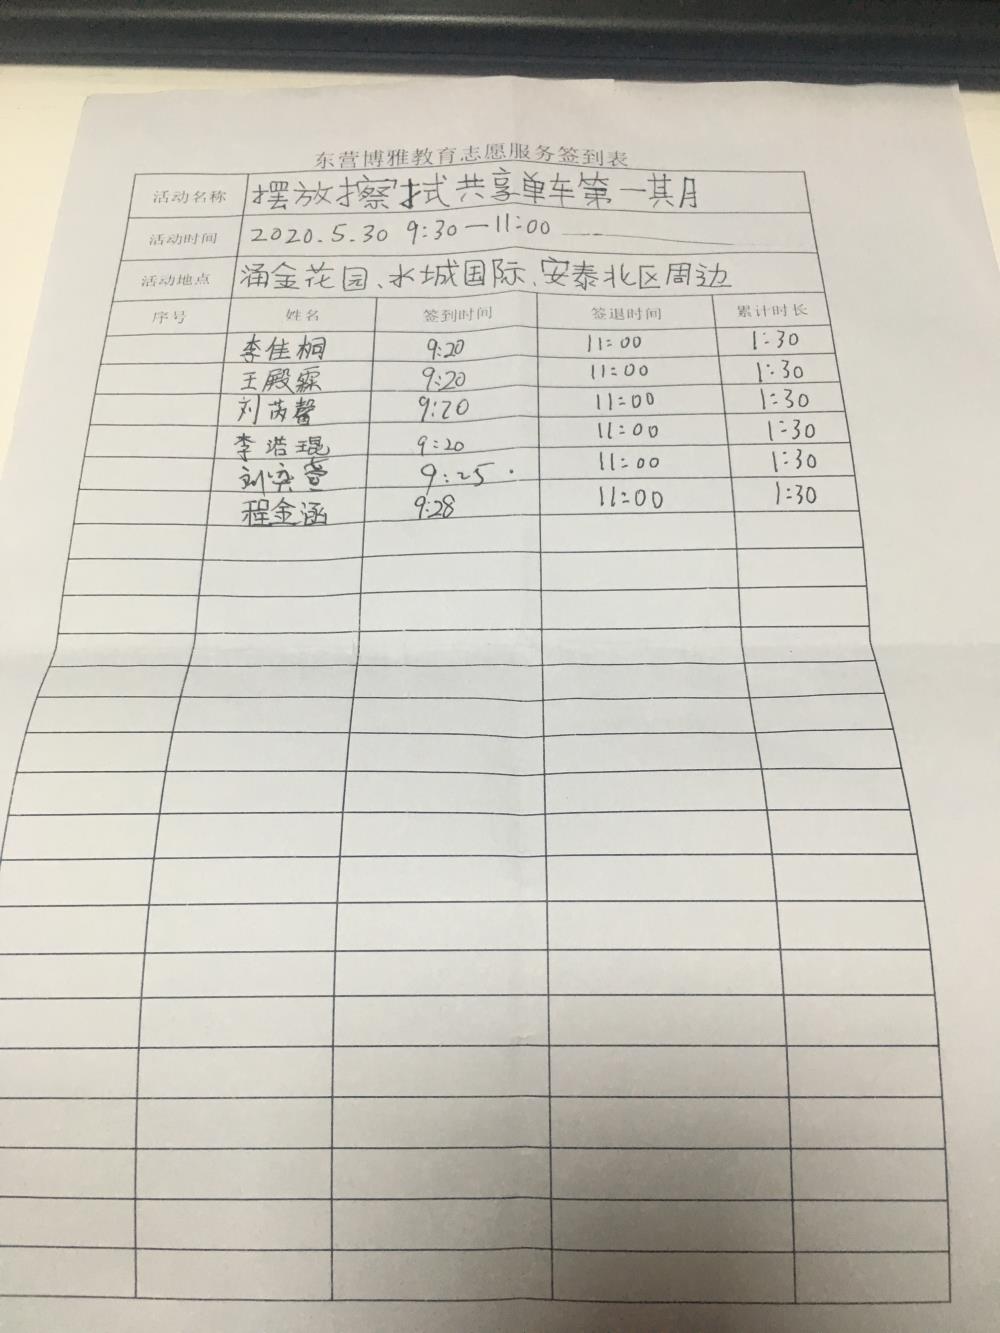 东营博雅教育志愿服务签到表
活动名称 摆放擦拭共享单车第一期
活动时间 2020.5.30 9:30—11:00
活动地点 涌金花园、水城国际、安泰北区周边
序号 姓名 签到时间 签退时间 累计时长
李佳桐 9:20 11:00 1:30
王殿霖 9:20 11:00 1:30
刘芮馨 9:20 11:00 1:30
李浩琨 9:20 11:00 1:30
刘奕萱 9:25 11:00 1:30
程金涵 9:28 11:00 1:30